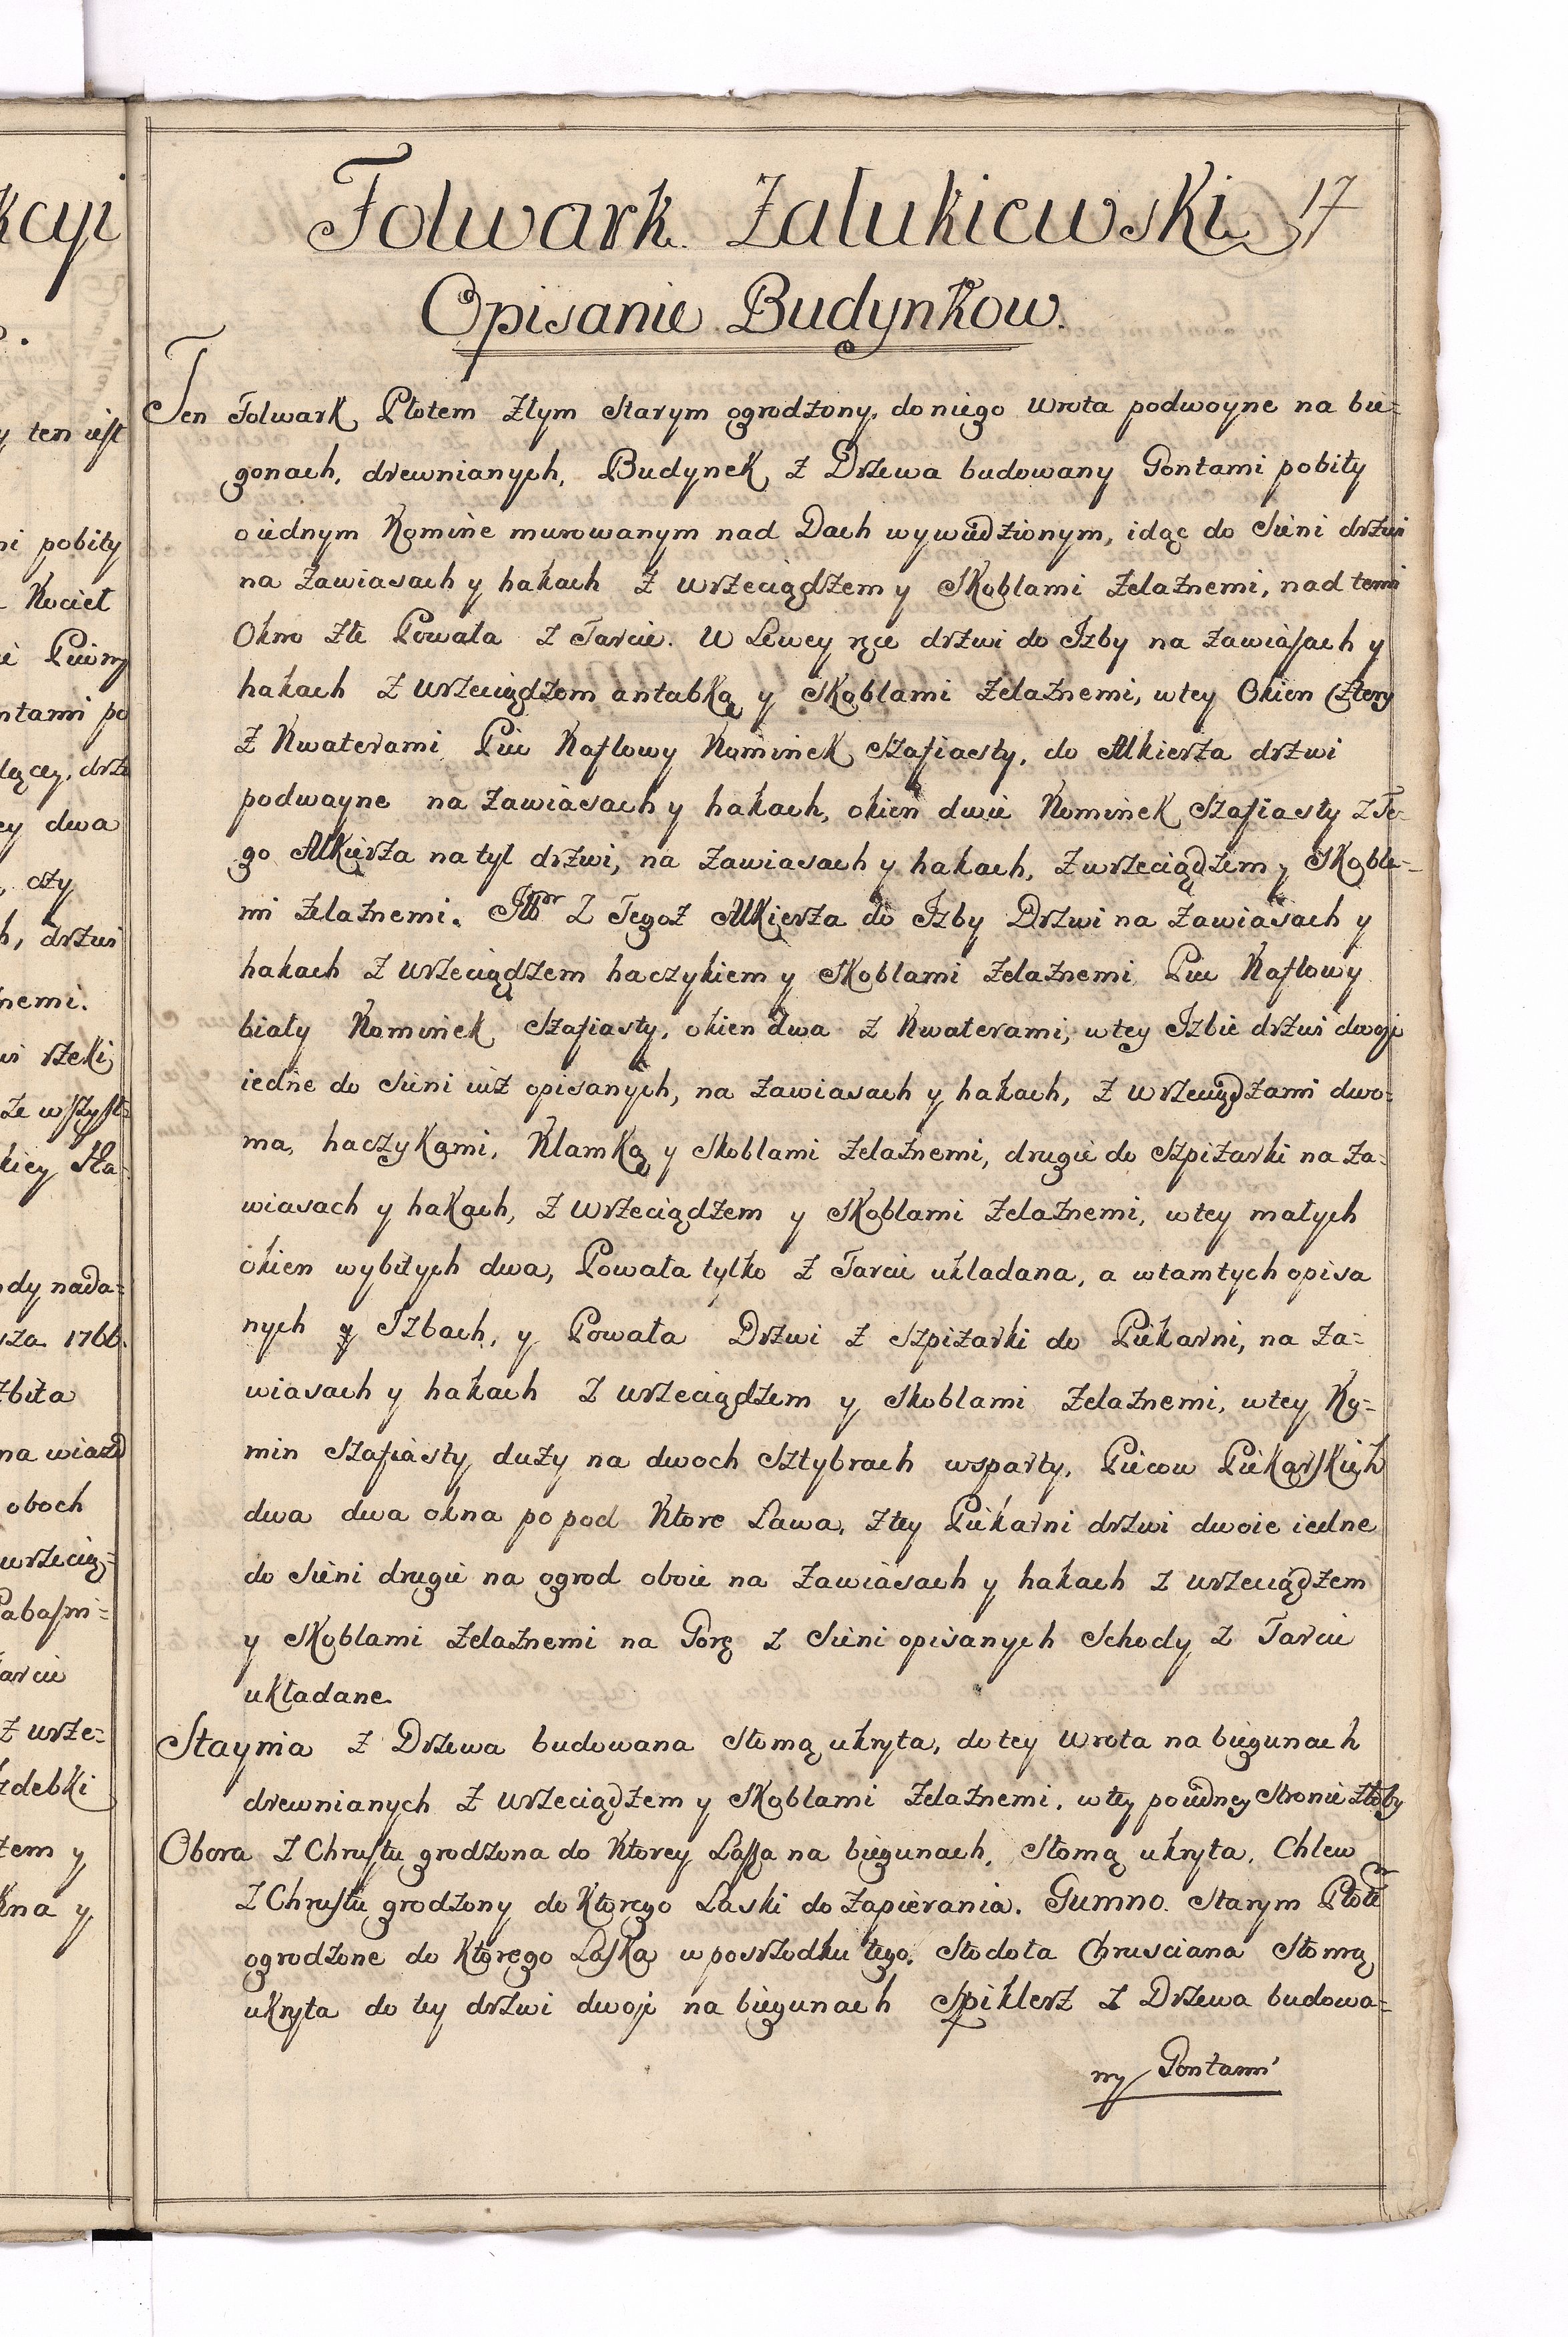 Folwark Załukiewski 17
Opisanie Budynkow.
Ten Folwark Płotem złym starym ogrodzony, do niego wrota podwoyne na bie=
gonach, drewnianych, Budynek z Drzewa budowany Gontami pobity
o iednym Kominie murowanym nad Dach wywiedzionym, idąc do Sieni drzwi
na zawiasach y hakach z wrzeciądzem y skoblami żelaznemi, nad temi
Okno złe Powała z Tarcic. W Lewey ręce drzwi do Izby na zawiasach y
hakach z wrzeciądzem antabką y skoblami żelaznemi, w tey Okien cztery
z Kwaterami Piec Kaflowy Kominek szafiasty, do Alkierza drzwi
podwoyne na zawiasach y hakach, okien dwie Kominek Szafiasty z Te=
go Alkierza na tyl drzwi, na zawiasach y hakach, z wrzeciądzem y skobla=
mi żelaznemi. Z Tegoż Alkierza do Izby Drzwi na zawiasach y
hakach z wrzeciądzem haczykiem y skoblami żelaznemi Piec Kaflowy
biały Kominek szafiasty, okien dwa z Kwaterami, w tey Izbie drzwi dwoje
iedne do Sieni iuż opisanych, na zawiasach y hakach, z wrzeciądzami dwo=
ma, haczykami, Klamką y skoblami żelaznemi, drugie do szpiżarki na za=
wiasach y hakach, z wrzeciądzem y skoblami żelaznemi, w tey małych
okien wybitych dwa, Powała tylko z Tarcic układana, a w tamtych opisa
nych y Izbach, y Powała Drzwi z szpiżarki do Piekarni, na za=
wiasach y hakach z wrzeciądzem y skoblami żelaznemi, w tey Ko=
min szafiasty duży na dwoch sztybrach wsparty, Piecow Piekarskich
dwa dwa okna po pod Ktore Ława, z tey Piekarni drzwi dwoie iedne
do Sieni drugie na ogrod oboie na zawiasach y hakach z wrzeciądzem
y skoblami żelaznemi na Gorę z Sieni opisanych Schody z Tarcic
układane.
Staynia z Drzewa budowana słomą ukryta, do tey wrota na biegunach
drewnianych z wrzeciądzem y skoblami żelaznemi, w tey po iedney stronie żłoby
Obora z Chrustu grodzona do Ktorey Lassa na biegunach, słomą ukryta, Chlew
z Chrustu grodzony do Ktorego Laski do zapierania. Gumno starym Płotē
ogrodzone do Ktorego Laska w posrzodku tego, stodoła Chrusciana słomą
ukryta do tey drzwi dwoje na biegunach Spiklerz z Drzewa budowa=
ny Gontami